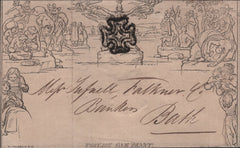 Messrs Tufnell Falkner & Co
Bankers
Bath
POSTAGE ONE PENNY.